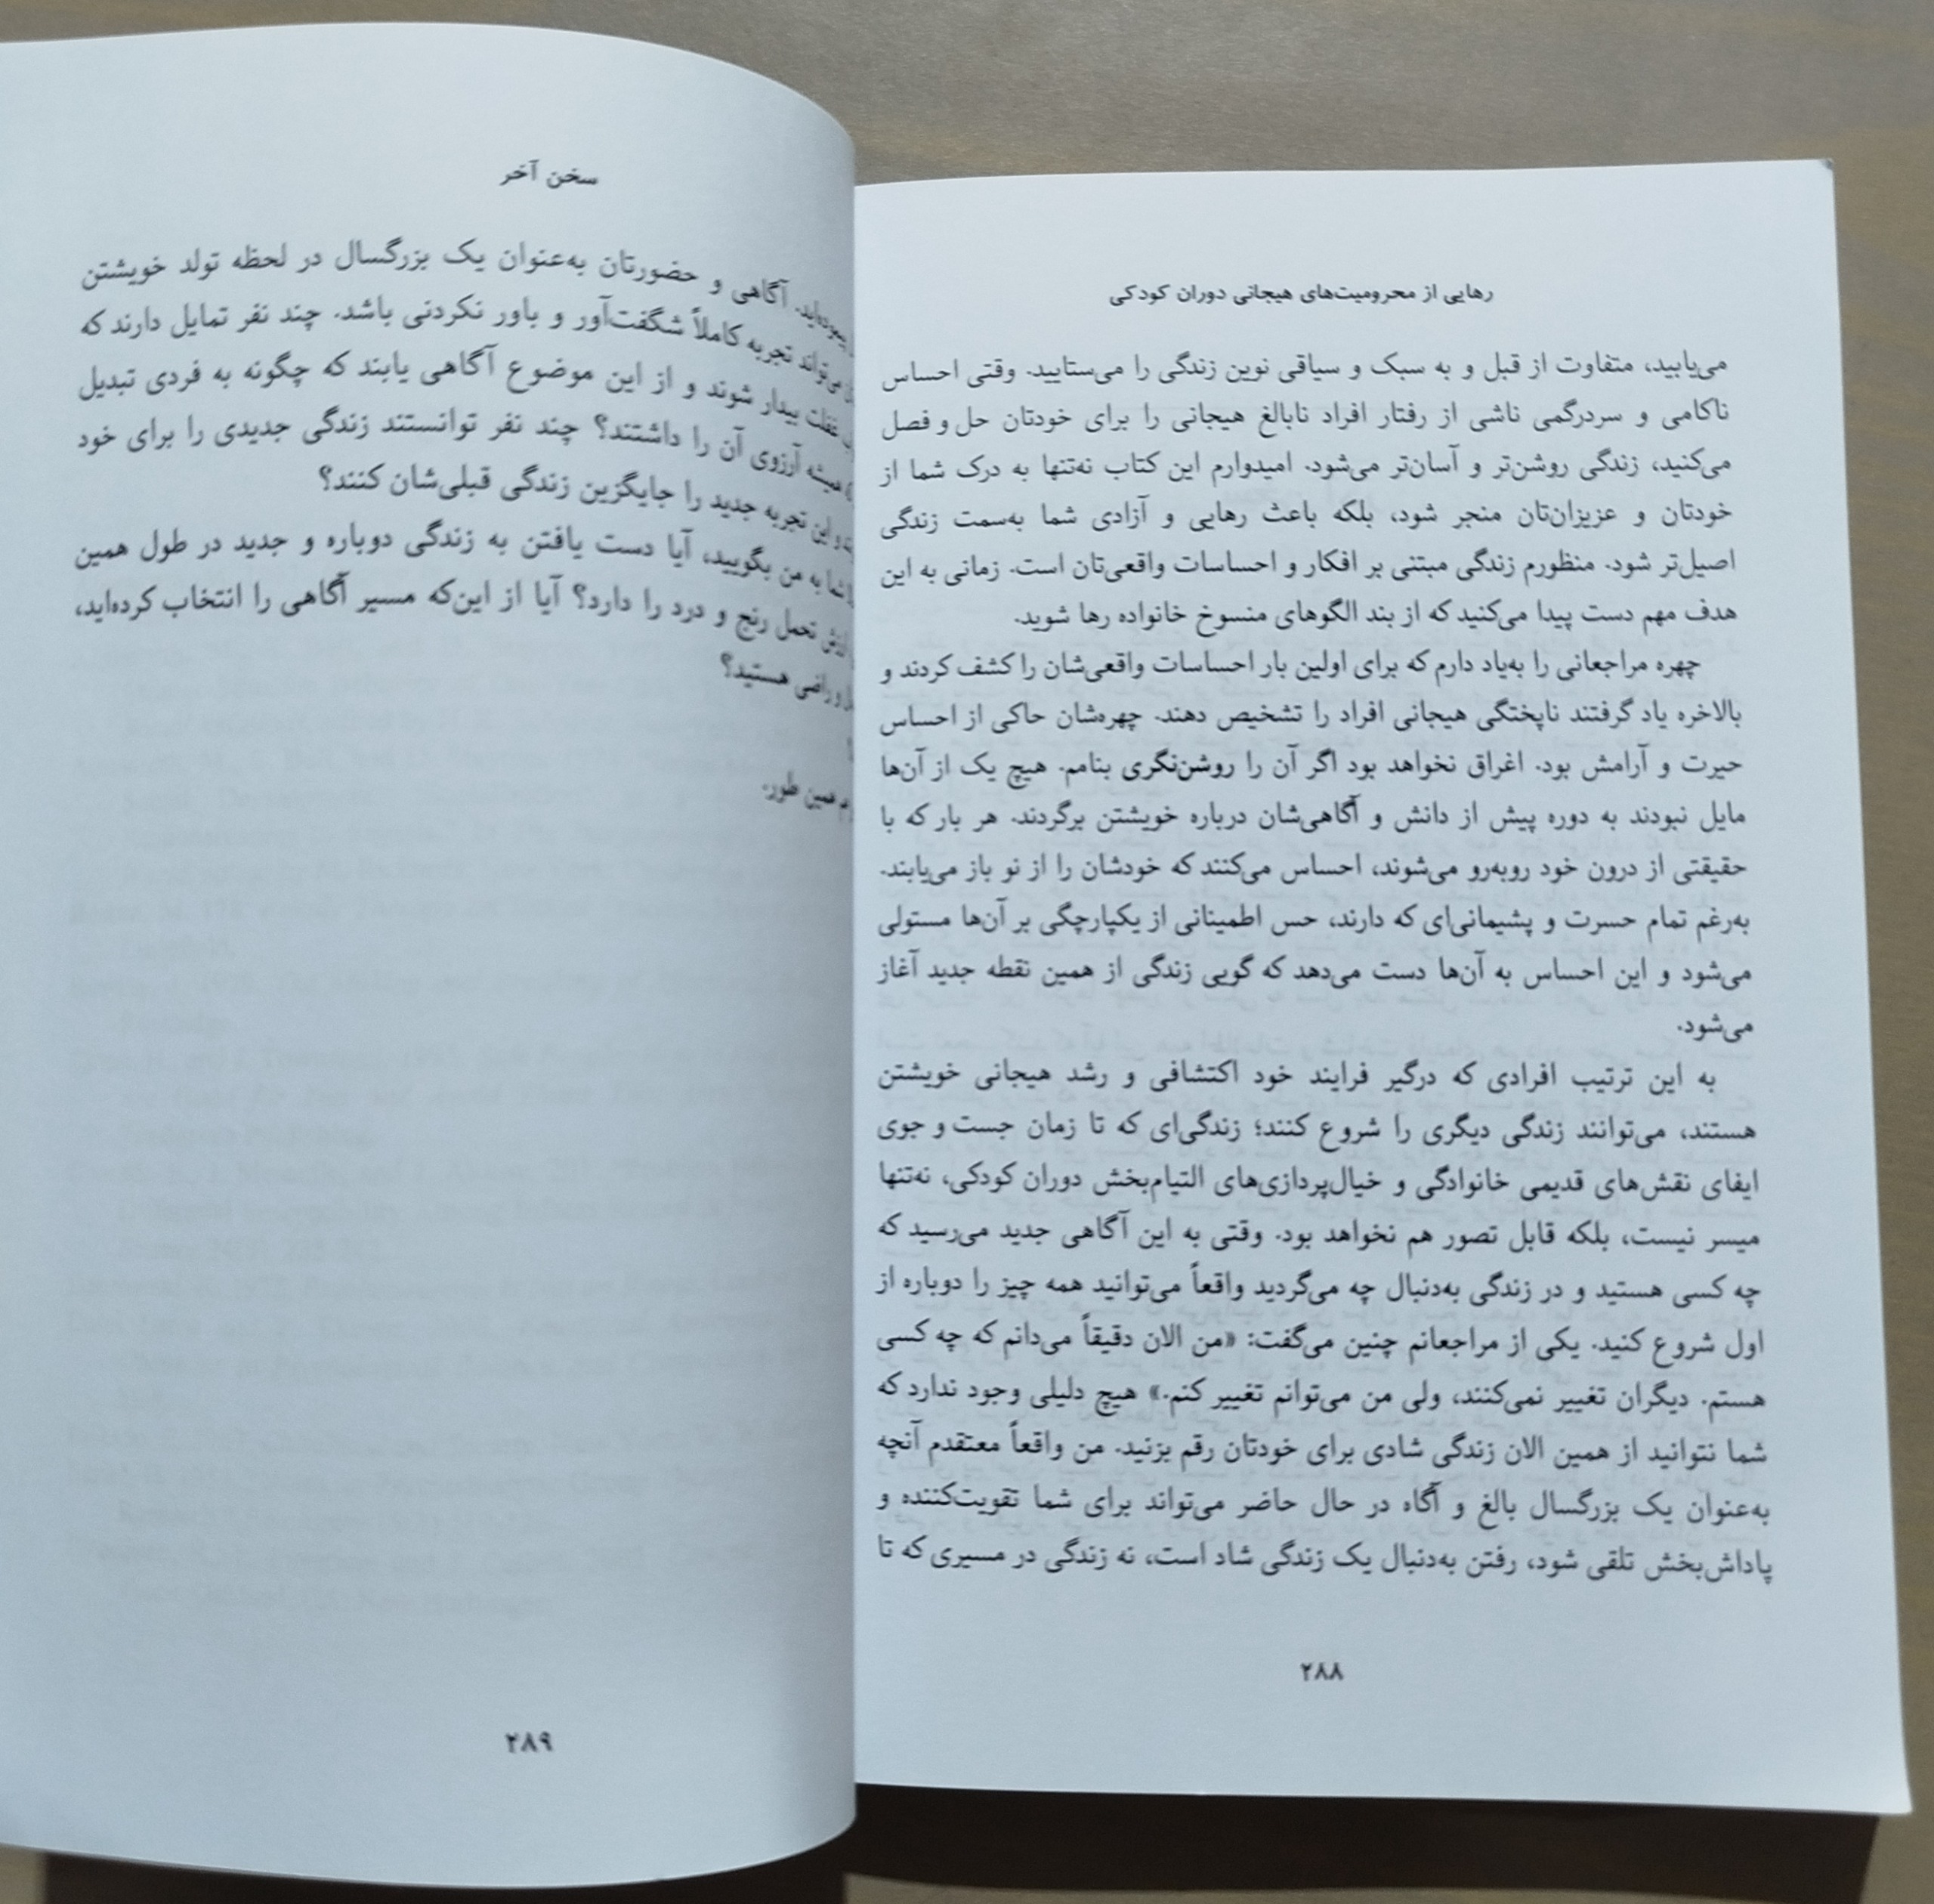 رهایی از محرومیت‌های هیجانی دوران کودکی
می‌یابید، متفاوت از قبل و به سبک و سیاقی نوین زندگی را می‌ستایید. وقتی احساس
ناکامی و سردرگمی ناشی از رفتار افراد نابالغ هیجانی را برای خودتان حل و فصل
می‌کنید، زندگی روشن‌تر و آسان‌تر می‌شود. امیدوارم این کتاب نه‌تنها به درک شما از
خودتان و عزیزان‌تان منجر شود، بلکه باعث رهایی و آزادی شما به‌سمت زندگی
اصیل‌تر شود. منظورم زندگی مبتنی بر افکار و احساسات واقعی‌تان است. زمانی به این
هدف مهم دست پیدا می‌کنید که از بند الگوهای منسوخ خانواده رها شوید.
چهره مراجعانی را به‌یاد دارم که برای اولین بار احساسات واقعی‌شان را کشف کردند و
بالاخره یاد گرفتند ناپختگی هیجانی افراد را تشخیص دهند. چهره‌شان حاکی از احساس
حیرت و آرامش بود. اغراق نخواهد بود اگر آن را روشن‌نگری بنامم. هیچ یک از آن‌ها
مایل نبودند به دوره پیش از دانش و آگاهی‌شان درباره خویشتن برگردند. هر بار که با
حقیقتی از درون خود روبه‌رو می‌شوند، احساس می‌کنند که خودشان را از نو باز می‌یابند.
به‌رغم تمام حسرت و پشیمانی‌ای که دارند، حس اطمینانی از یکپارچگی بر آن‌ها مستولی
می‌شود و این احساس به آن‌ها دست می‌دهد که گویی زندگی از همین نقطه جدید آغاز
می‌شود.
به این ترتیب افرادی که درگیر فرایند خود اکتشافی و رشد هیجانی خویشتن
هستند، می‌توانند زندگی دیگری را شروع کنند؛ زندگی‌ای که تا زمان جست و جوی
ایفای نقش‌های قدیمی خانوادگی و خیال‌پردازی‌های التیام‌بخش دوران کودکی، نه‌تنها
میسر نیست، بلکه قابل تصور هم نخواهد بود. وقتی به این آگاهی جدید می‌رسید که
چه کسی هستید و در زندگی به‌دنبال چه می‌گردید واقعاً می‌توانید همه چیز را دوباره از
اول شروع کنید. یکی از مراجعانم چنین می‌گفت: «من الان دقیقاً می‌دانم که چه کسی
هستم. دیگران تغییر نمی‌کنند، ولی من می‌توانم تغییر کنم.» هیچ دلیلی وجود ندارد که
شما نتوانید از همین الان زندگی شادی برای خودتان رقم بزنید. من واقعاً معتقدم آنچه
به‌عنوان یک بزرگسال بالغ و آگاه در حال حاضر می‌تواند برای شما تقویت‌کننده و
پاداش‌بخش تلقی شود، رفتن به‌دنبال یک زندگی شاد است، نه زندگی در مسیری که تا
۲۸۸
سخن آخر
آگاهی و حضورتان به‌عنوان یک بزرگسال در لحظه تولد خویشتن
می‌تواند تجربه کاملاً شگفت‌آور و باور نکردنی باشد. چند نفر تمایل دارند که
غفلت بیدار شوند و از این موضوع آگاهی یابند که چگونه به فردی تبدیل
همیشه آرزوی آن را داشتند؟ چند نفر توانستند زندگی جدیدی را برای خود
و این تجربه جدید را جایگزین زندگی قبلی‌شان کنند؟
شما به من بگویید، آیا دست یافتن به زندگی دوباره و جدید در طول همین
ارزش تحمل رنج و درد را دارد؟ آیا از این‌که مسیر آگاهی را انتخاب کرده‌اید،
و راضی هستید؟
هم همین طور.
۲۸۹